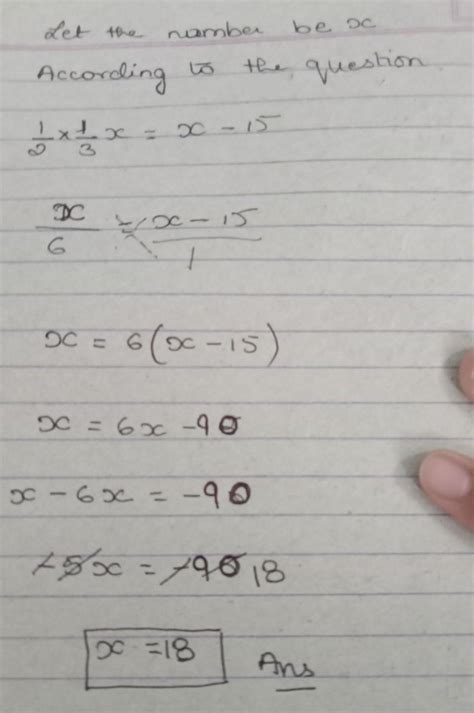 Let the number be x
According to the question
1/2 × 1/3 x = x - 15
x/6 = x - 15/1
x = 6(x - 15)
x = 6x - 90
x - 6x = -90
-5x = -90 18
x = 18 Ans